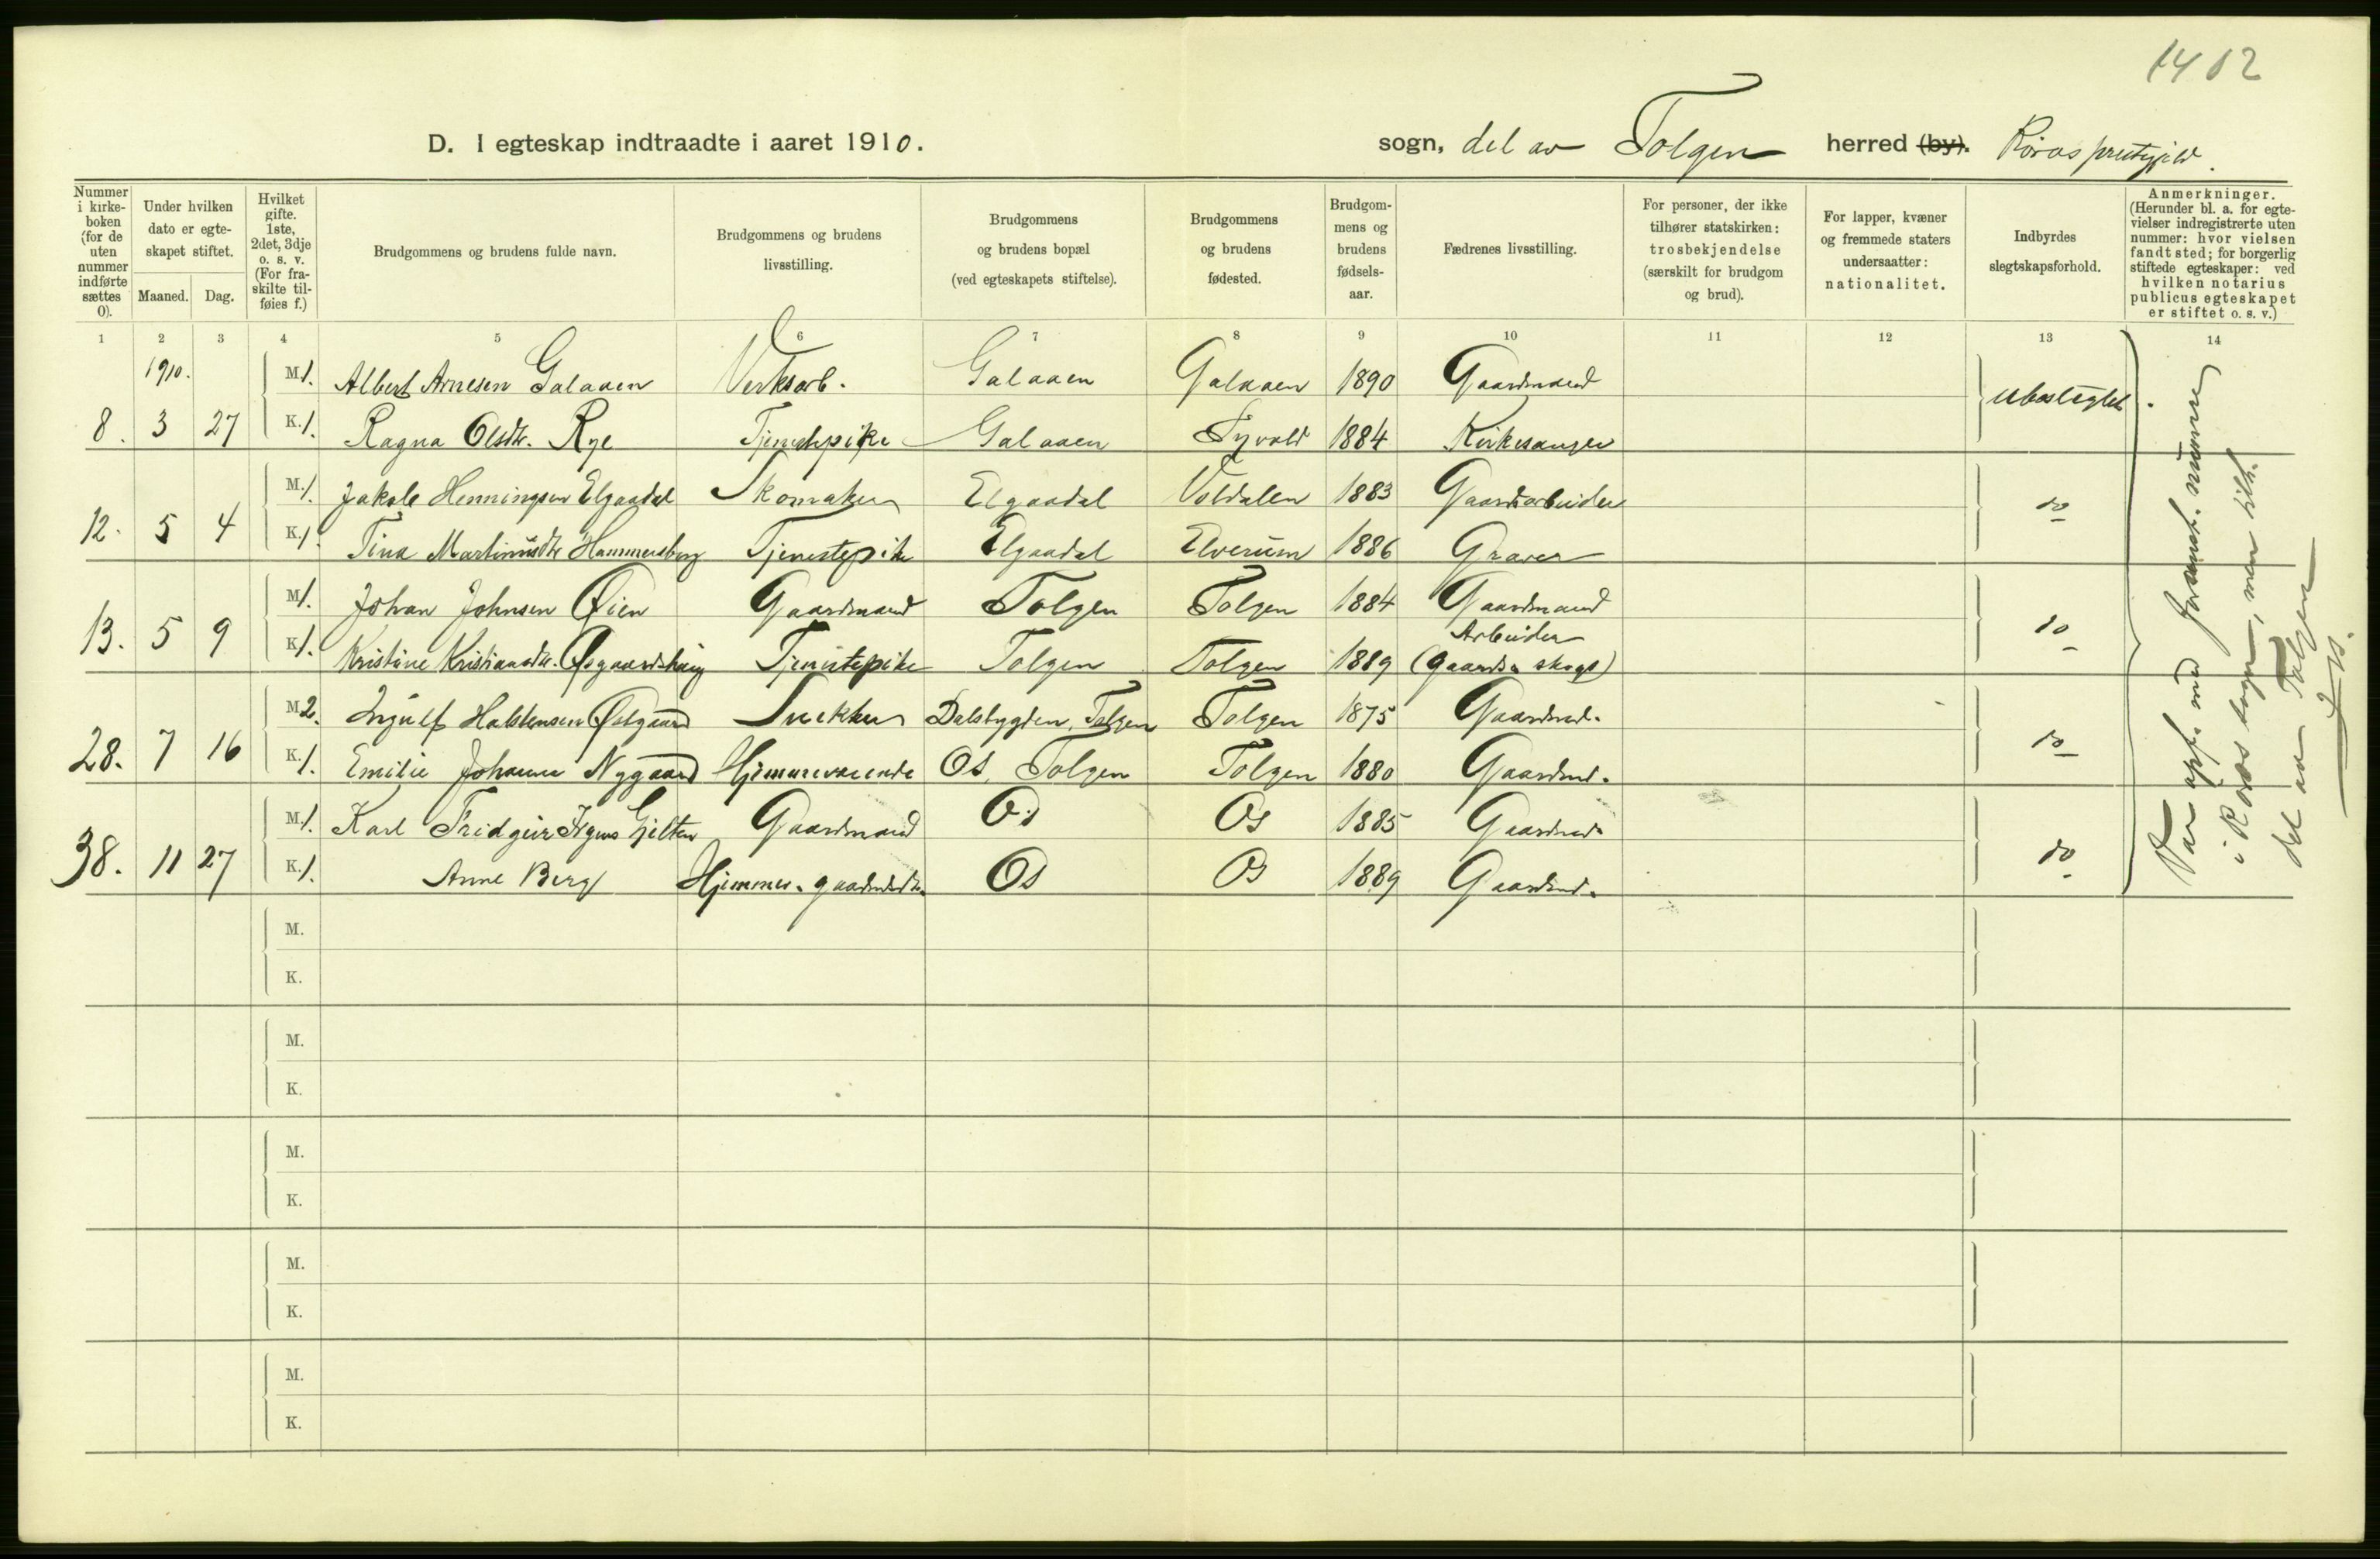 1402
D. I egteskap indtraadte i aaret 1910.
sogn, del av Tolgen herred (by). Røros prestegjeld.
Nummer i kirkeboken (for de uten nummer indførte sættes 0).
Under hvilken dato er egteskapet stiftet.
Maaned. Dag.
Hvilket gifte. 1ste, 2det, 3dje o. s. v. (For fraskilte tilføies f.)
Brudgommens og brudens fulde navn.
Brudgommens og brudens livsstilling.
Brudgommens og brudens bopæl (ved egteskapets stiftelse).
Brudgommens og brudens fødested.
Brudgommens og brudens fødselsaar.
Fædrenes livsstilling.
For personer, der ikke tilhører statskirken: trosbekjendelse (særskilt for brudgom og brud).
For lapper, kvæner og fremmede staters undersaatter: nationalitet.
Indbyrdes slegtskapsforhold.
Anmerkninger. (Herunder bl. a. for egtevielser indregistrerte uten nummer: hvor vielsen fandt sted; for borgerlig stiftede egteskaper: ved hvilken notarius publicus egteskapet er stiftet o. s. v.)
1 2 3 4 5 6 7 8 9 10 11 12 13 14
1910. M. 1. Albert Arnesen Galaaen Verksarb. Galaaen Galaaen 1890 Gaardmand ubeslegtet.
8. 3 27 K. 1. Ragna Olsdtr. Rye Tjenestepike Galaaen 1884 Kirkesanger
M. 1. Jakob Henningsen Elgaadal Skomaker Elgaadal 1883 Gaardarbeider do
12. 5 4 K. 1. Tina Martinusdtr Hammersberg Tjenestepike Elgaadal Elverum 1886 Graver
M. 1. Johan Johnsen Øien Gaardmand Tolgen Tolgen 1884 Gaardmand do
13. 5 9 K. 1. Kristine Kristiansdtr. Tjenestepike Tolgen Tolgen 1889 Arbeider (gaards & skogs)
M. 2. Ingulf Halstensen Østgaard Snekker Dalsbygden, Tolgen Tolgen 1875 Gaardmd. do
28. 7 16 K. 1. Emilie Johanne Nygaard Hjemmeværende Os, Tolgen Tolgen 1880 Gaardmd.
M. 1. Karl Fridgeir Gjelten Gaardmand Os Os 1885 Gaardmd. do
38. 11 27 K. 1. Anne Berg Hjemmev. gaardmdsdtr. Os Os 1889 Gaardmd.
M.
K.
M.
K.
M.
K.
M.
K.
M.
K.
Var opf. med foranst. nummer
i Røros sogn, men tilh.
del av Tolgen